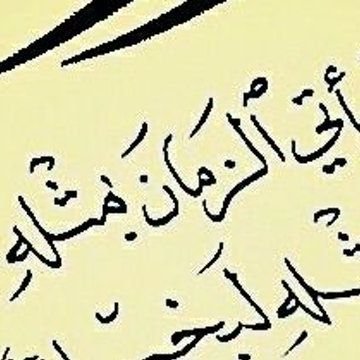 أتي ٱلزَّمَانَ بِمِثْلِهِ
ثلهِ لبخيـ